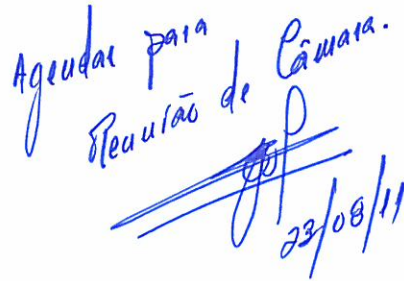 Agendar para
Reunião de Câmara.
23/08/11